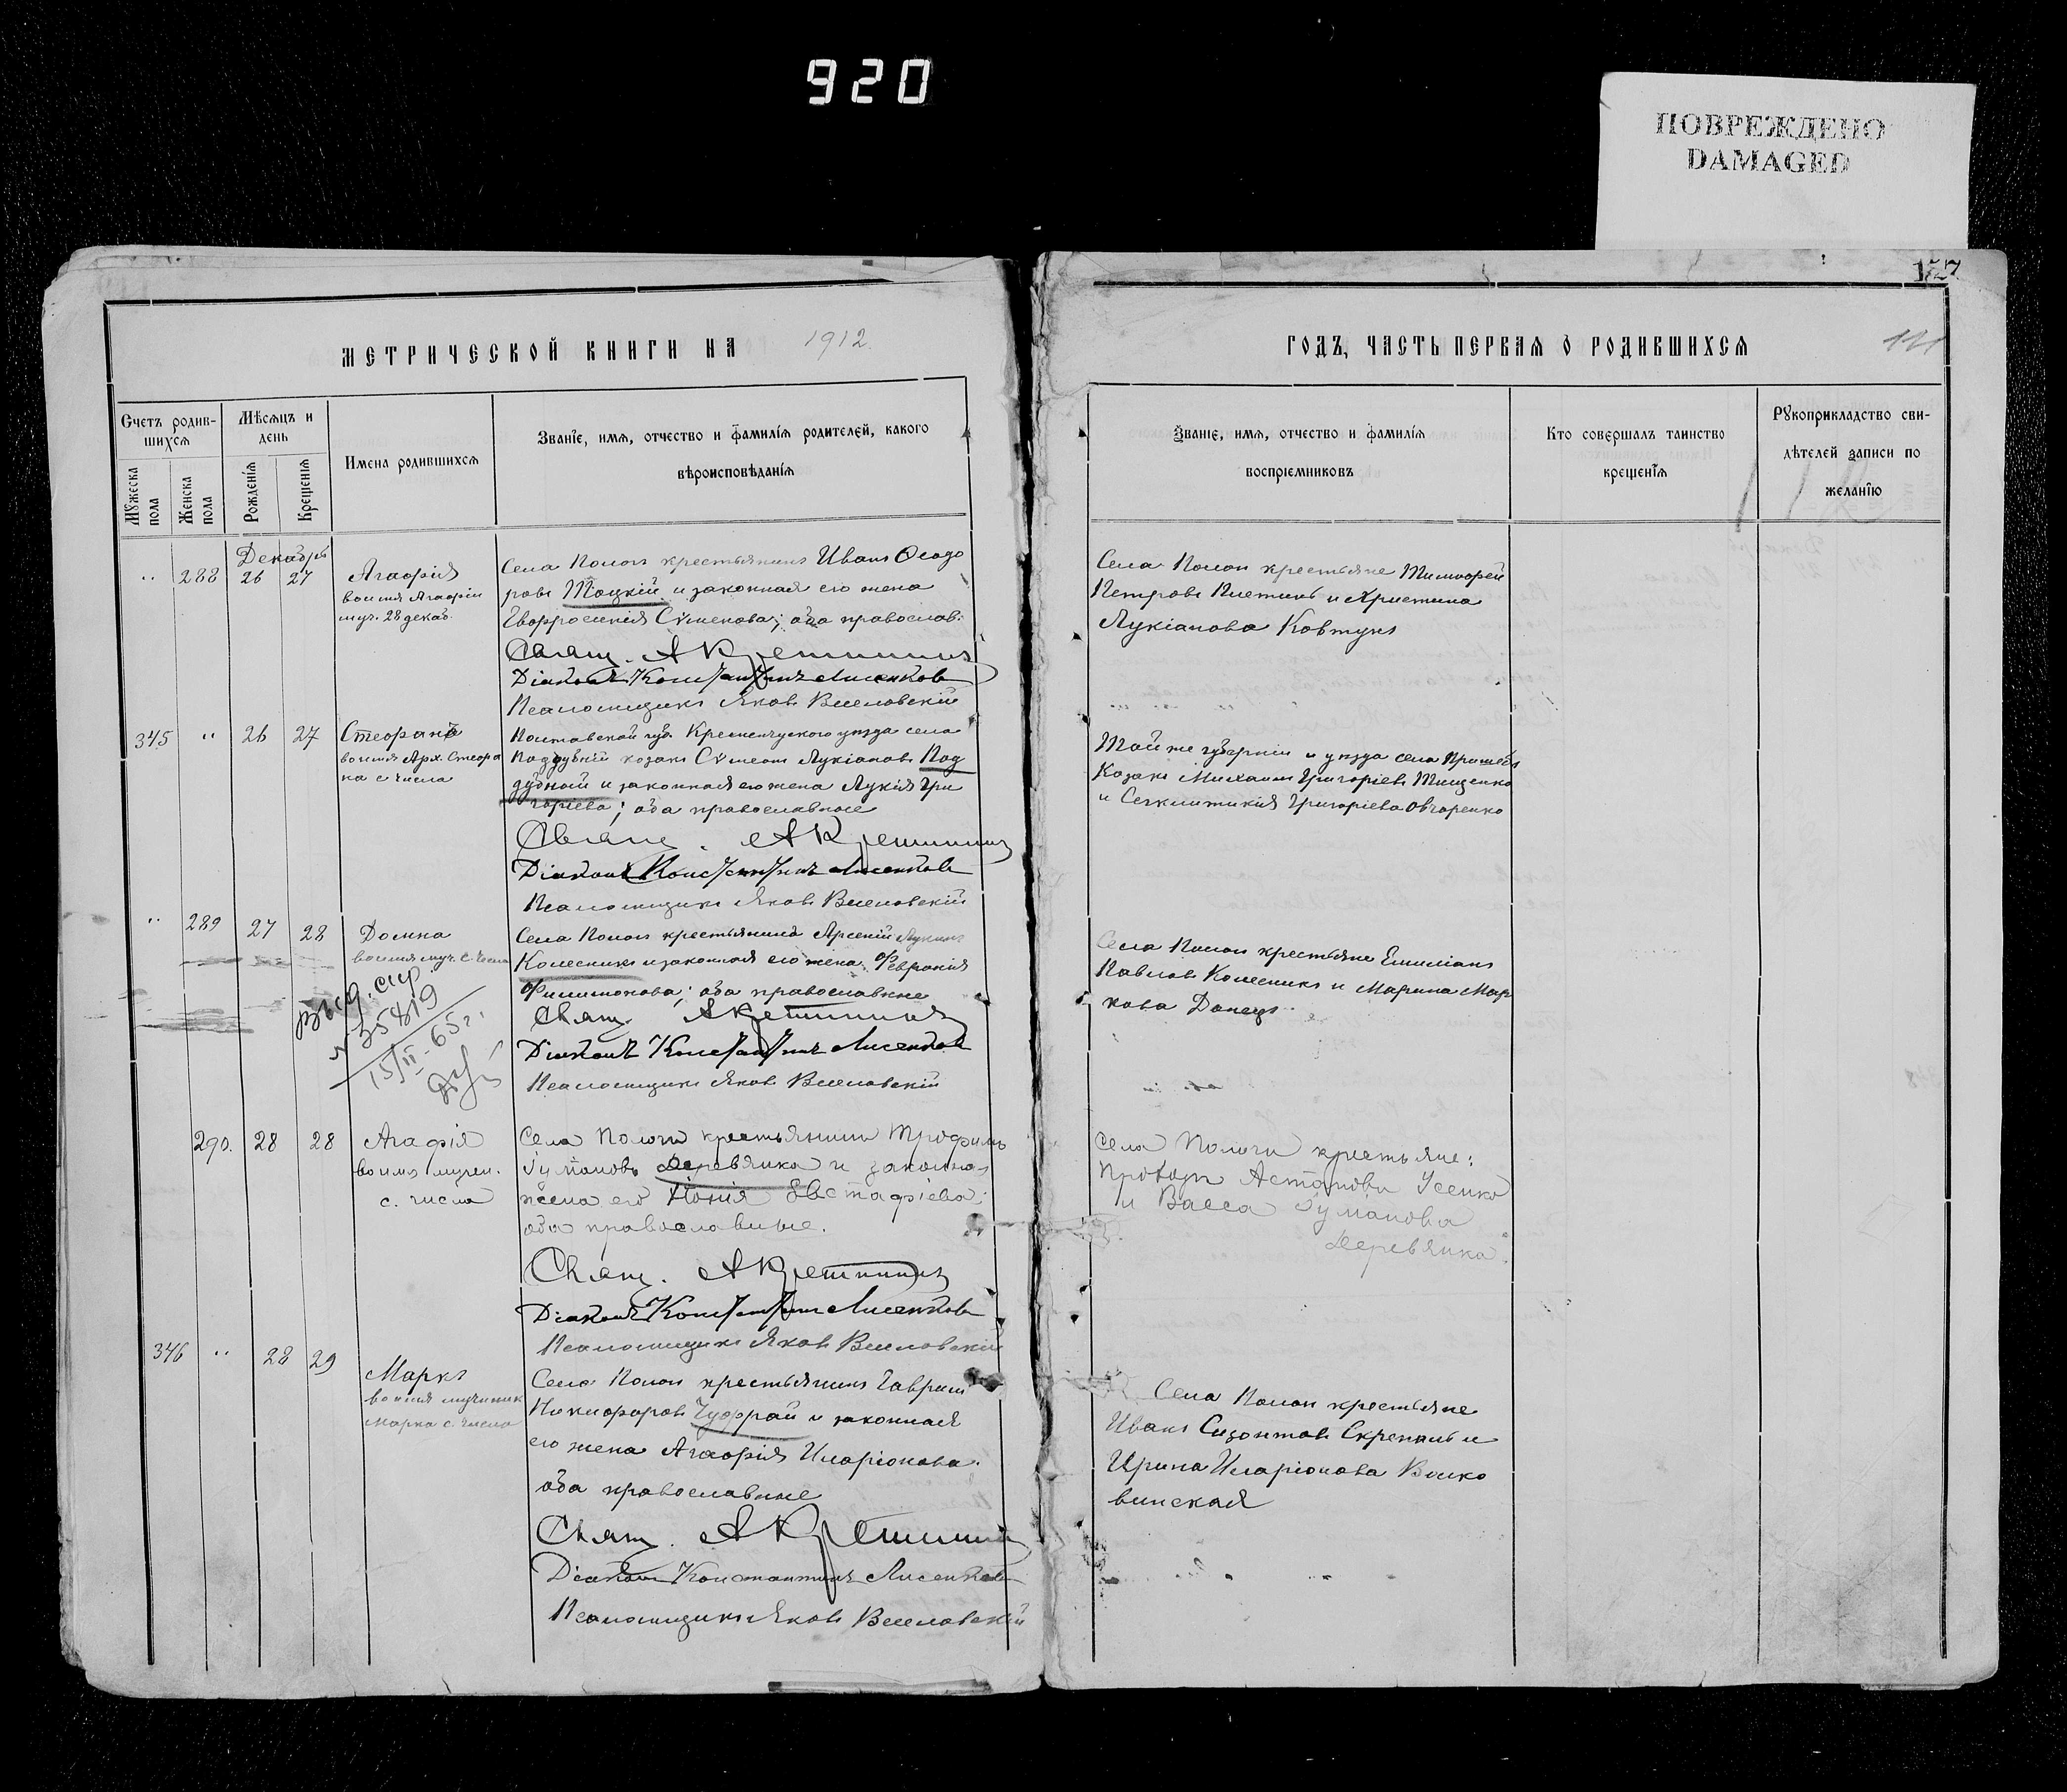 920
ПОВРЕЖДЕНО
DAMAGED
157
МЕТРИЧЕСКОЙ КНИГИ НА 1912.
ГОДЪ, ЧАСТЬ ПЕРВАЯ О РОДИВШИХСЯ
Счетъ родив-
шихся
Мужеска пола
Женска пола
Мѣсяцъ и
день
Рожденія
Крещенія
Имена родившихся
Званіе, имя, отчество и фамилія родителей, какого
вѣроисповѣданія
Званіе, имя, отчество и фамилія
воспріемниковъ
Кто совершалъ таинство
крещенія
Рукоприкладство сви-
дѣтелей записи по
желанію
Декабрь
" 288 26 27
Агафія
во имя Агафіи
муч. 28 декаб.
Села Пологъ крестьянинъ Иванъ Ѳеодо
ровъ Тоцкій и законная его жена
Евфросинія Сѵмеонова; оба православ.
Свящ. А Крешинин
Діаконъ Константинъ Лисенковъ
Псаломщикъ Яковъ Веселовскій
Села Пологи крестьяне Тимофей
Петровъ и Христина
Лукіанова Ковтунъ
345 " 26 27
Стефанъ
во имя Арх. Стефа
на с числа
Полтавской губ. Кременчугского уѣзда села
Поддубній козакъ Сѵмеонъ Лукіановъ Под
дубный и законная его жена Лукія Гри
горіева; оба православные
Свящ. А Крешинин
Діаконъ Константинъ Лисенковъ
Псаломщикъ Яковъ Веселовскій
Той же губерніи и уѣзда села
Козакъ Михаилъ Григоріевъ Тищенко
и Григоріева Овчаренко
" 289 27 28
Домна
во имя муч. с. числа
Села Пологъ крестьянинъ Арсеній Лукинъ
Колесникъ и законная его жена Февронія
Филимонова; оба православные
Свящ. А Крешинин
Діаконъ Константинъ Лисенковъ
Псаломщикъ Яковъ Веселовскій
Села Пологи крестьяне Емиліанъ
Павловъ Колесникъ и Марина Мар
кова Донецъ
выд. спр.
№ 35819
15/II-65 г.
290. 28 28
Агафія
во имя мучен.
с. числа
Села Пологи крестьянинъ Трофимъ
Деревянка и законная
жена его Евстафіева;
оба православные.
Свящ. А Крешинин
Діаконъ Константинъ Лисенковъ
Псаломщикъ Яковъ Веселовскій
Села Пологи крестьяне:
Усенко
и Васса
Деревянка
346 " 28 29
Маркъ
во имя мученик
Марка с. числа
Села Пологи крестьянинъ Гавриилъ
Никифоровъ и законная
его жена Агафія Иларіонова.
оба православные
Свящ. А Крешинин
Діаконъ Константинъ Лисенковъ
Псаломщикъ Яковъ Веселовскій
Села Пологи крестьяне
Иванъ Сизонтовъ и
Ирина Иларіонова Волко
винская